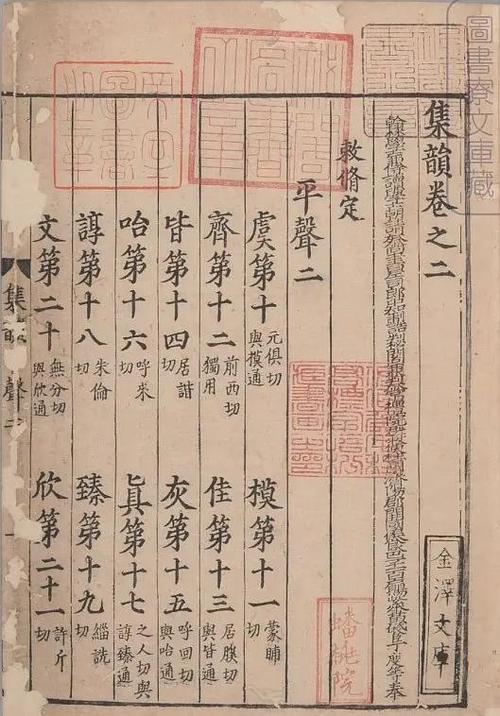 圖書寮文庫藏
集韻卷之二
金澤文庫
翰林學士兼侍讀學士朝請大夫尚書左司郎中知制誥判祕閣兼判太常禮院濟陽郡開國侯食邑丁度等奉
敕脩定
蟠桃院
平聲二
虞第十 元俱切與模通 模第十一 蒙晡切
齊第十二 前西切獨用 佳第十三 居膎切與皆通
皆第十四 居諧切 灰第十五 呼回切與咍通
咍第十六 呼來切 眞第十七 之人切與諄臻通
諄第十八 朱倫切 臻第十九 緇詵切
文第二十 無分切與欣通 欣第二十一 許斤切
集 聲二